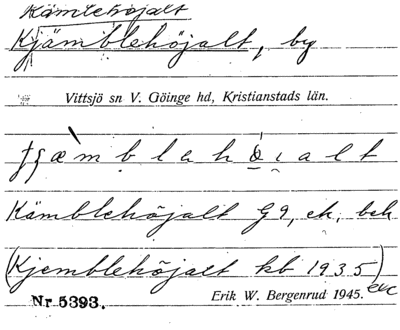 Kämblehöjalt
Kjämblehöjalt, by
Vittsjö sn V. Göinge hd, Kristianstads län.
æ m b l a h ö i a l t
Kämblehöjalt G9, ek, beb
(Kjemblehöjalt kb 1935)
Nr 5393. Erik W. Bergenrud 1945.